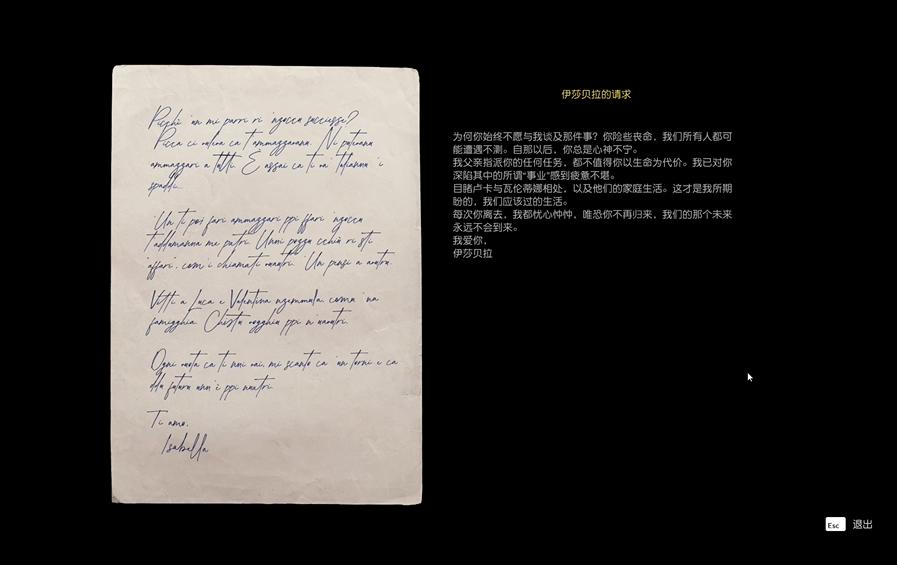 Picchì 'un mi parri ri 'nzocca successi?
ammazzari a tutti. È assai ca ti
'Un ti poi fari ammazzari ppi ffari 'nzocca
Vitti a Luca e Valentina
famigghia. Chistu vogghiu ppi
Ogni vota ca ti nni vai, mi scantu ca 'un torni e ca
ddu futuru
Ti amo,
Isabella
伊莎贝拉的请求
为何你始终不愿与我谈及那件事？你险些丧命，我们所有人都可
能遭遇不测。自那以后，你总是心神不宁。
我父亲指派你的任何任务，都不值得你以生命为代价。我已对你
深陷其中的所谓“事业”感到疲惫不堪。
目睹卢卡与瓦伦蒂娜相处，以及他们的家庭生活。这才是我所期
盼的，我们应该过的生活。
每次你离去，我都忧心忡忡，唯恐你不再归来，我们的那个未来
永远不会到来。
我爱你，
伊莎贝拉
Esc 退出